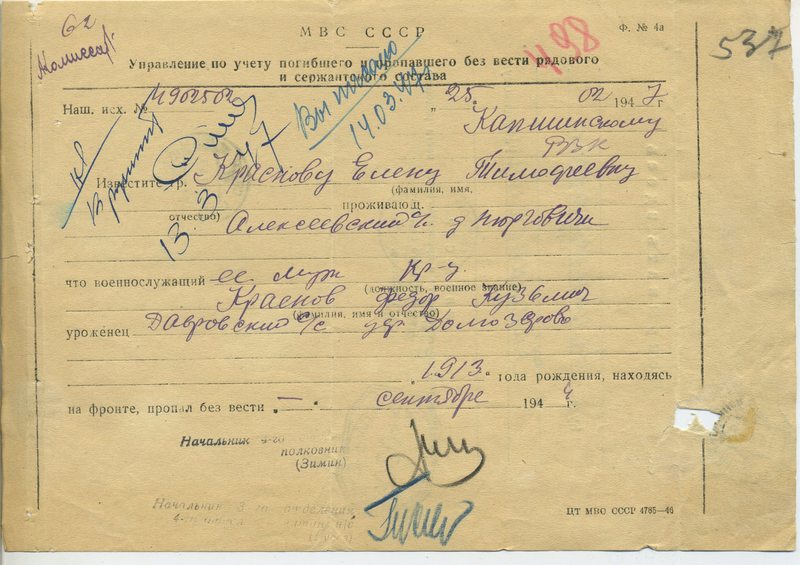 62
МВС СССР
Ф. № 4а
498
537
Управление по учету погибшего и пропавшего без вести рядового
и сержантского состава
Выписано
14.03.47
Наш. исх. № 4902502
„ 25. 02 1947
Капшинскому
РВК
Известите гр. Краснову Елену Тимофеевну
(фамилия, имя,
проживающ.
отчество)
13.3 47
Алексеевский с д Нюрговичи
что военнослужащий ее муж кр-ц
(должность, военное звание)
Краснов Федор Кузьмич
(фамилия, имя и отчество)
уроженец Лавровский с/с дер. Долгозерово
„1913. года рождения, находясь
на фронте, пропал без вести „ — сентябре 1944 г.
Начальник 4-го
полковник
(Зимин)
Начальник 3 го отделения
ЦТ МВС СССР 4785—46